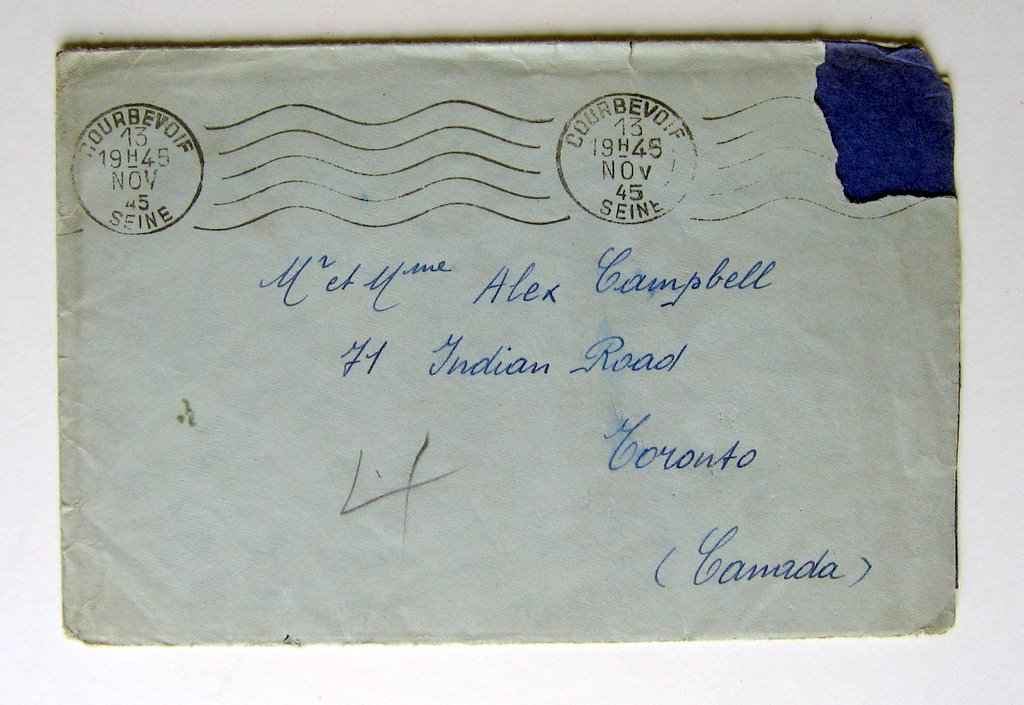 COURBEVOIE
13
19H45
NOV
45
SEINE
COURBEVOIE
13
19H45
NOV
45
SEINE
Mr et Mme Alex Campbell
71 Indian Road
Toronto
(Canada)
4